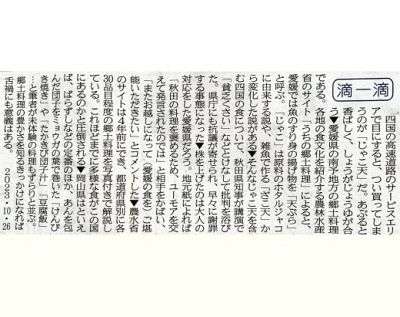 滴一滴
四国の高速道路のサービスエリ
アで目にすると、つい買ってしま
うのが「じゃこ天」だ。あぶると
香ばしく、しょうがじょうゆが合
う▼愛媛県の南予地方の郷土料理
である。各地の食文化を紹介する農林水産
省のサイト「うちの郷土料理」によると、
愛媛では魚のすり身の揚げ物を「天ぷら」
と呼ぶ。「じゃこ」は原料のホタルジャコ
に由来する説や、雑魚で作る「ざこ天」か
ら変化した説がある▼そんなじゃこ天を含
む四国の食について、秋田県知事が講演で
「貧乏くさい」などとけなして批判を浴び
た。県庁にも抗議が寄せられ、早々に謝罪
する事態になった▼株を上げたのは大人の
対応をした愛媛県だろう。地元紙によれば
「秋田の料理を褒めるため、ユーモアを交
えて発言されたのでは」と相手をかばい、
「またお越しになって『愛媛の食を』ご堪
能いただきたい」とコメントした▼農水省
のサイトは4年前にでき、都道府県別に各
30品目程度の郷土料理を写真付きで解説し
ている。これほどまでに多様な食がこの国
にあるのかと圧倒される▼岡山県はといえ
ば、ばらずしなどの定番のほか、あんを包
んだ団子をミョウガの葉で巻いた「けんび
き焼き」や「たかきび団子汁」「豆腐飯」
…と筆者が未体験の料理もずらりと並ぶ。
郷土料理の豊かさを知るきっかけになれば
舌禍にも意義はある。 2023・10・26